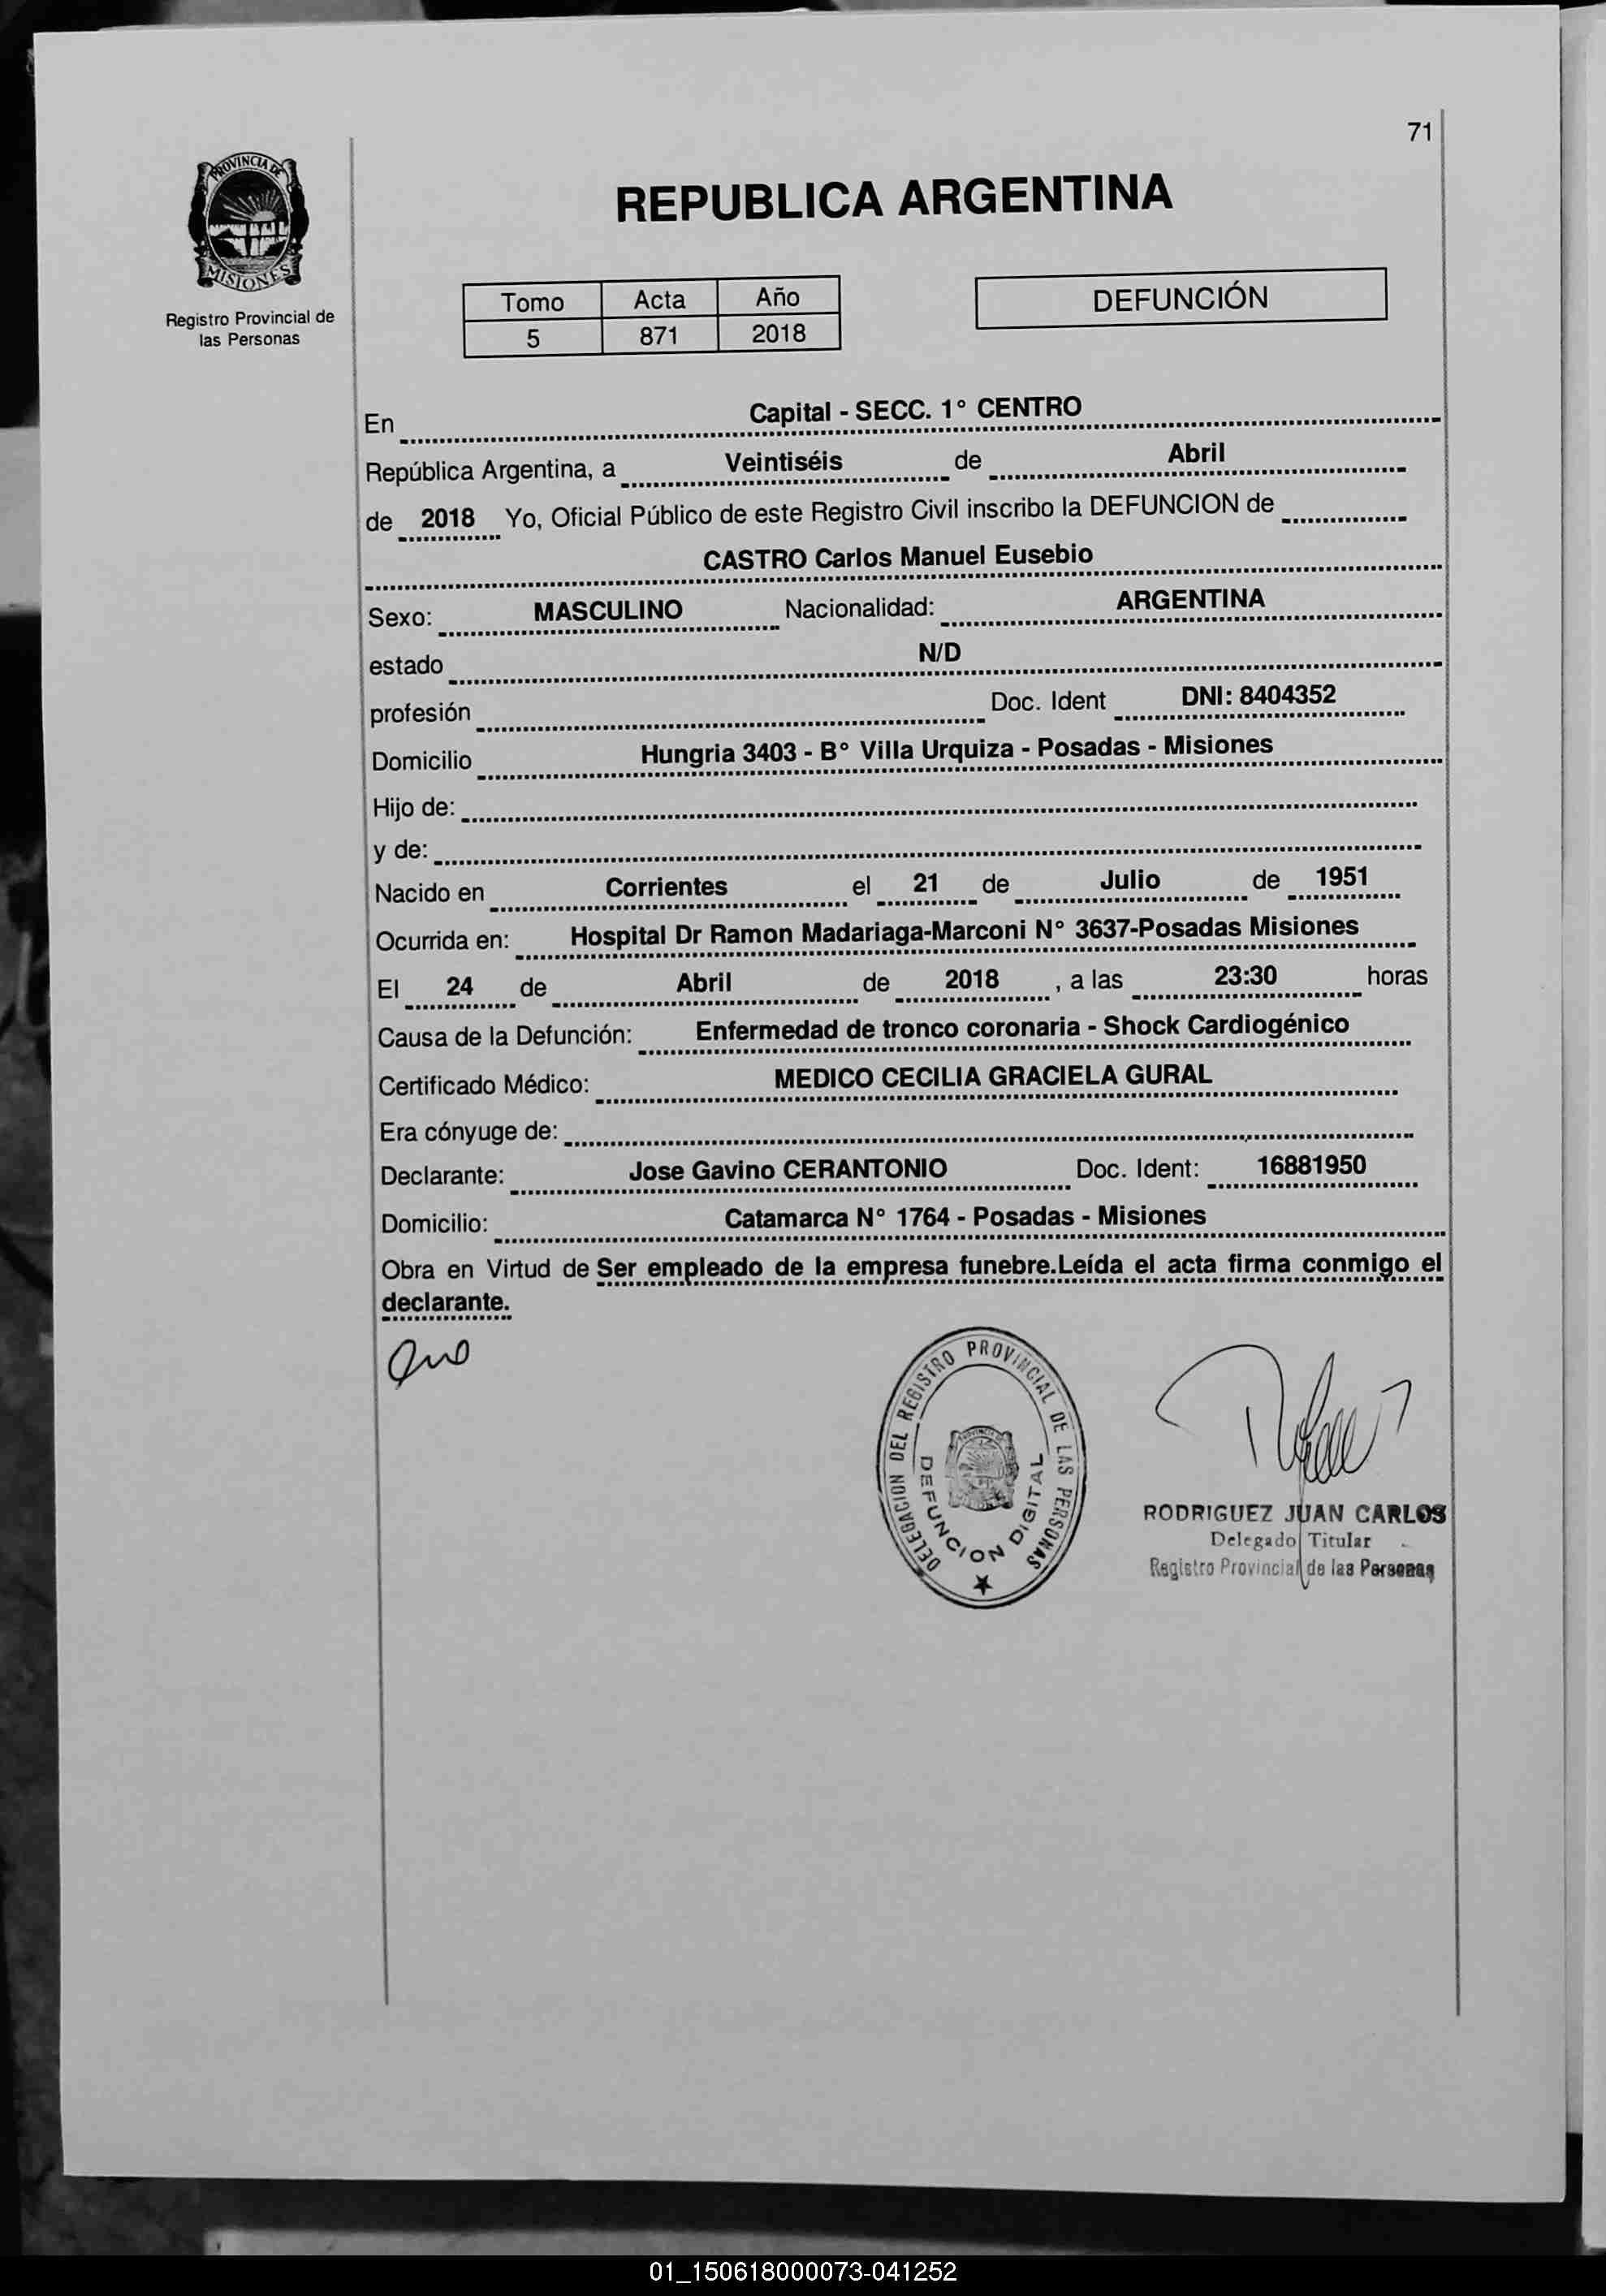 71
PROVINCIA DE
MISIONES
Registro Provincial de
las Personas
REPUBLICA ARGENTINA
Tomo Acta Año
5 871 2018
DEFUNCIÓN
En Capital - SECC. 1° CENTRO
República Argentina, a Veintiséis de Abril
de 2018 Yo, Oficial Público de este Registro Civil inscribo la DEFUNCION de
CASTRO Carlos Manuel Eusebio
Sexo: MASCULINO Nacionalidad: ARGENTINA
estado N/D
profesión Doc. Ident DNI: 8404352
Domicilio Hungria 3403 - B° Villa Urquiza - Posadas - Misiones
Hijo de:
y de:
Nacido en Corrientes el 21 de Julio de 1951
Ocurrida en: Hospital Dr Ramon Madariaga-Marconi N° 3637-Posadas Misiones
El 24 de Abril de 2018 , a las 23:30 horas
Causa de la Defunción: Enfermedad de tronco coronaria - Shock Cardiogénico
Certificado Médico: MEDICO CECILIA GRACIELA GURAL
Era cónyuge de:
Declarante: Jose Gavino CERANTONIO Doc. Ident: 16881950
Domicilio: Catamarca N° 1764 - Posadas - Misiones
Obra en Virtud de Ser empleado de la empresa funebre.Leída el acta firma conmigo el
declarante.
DELEGACION DEL REGISTRO PROVINCIAL DE LAS PERSONAS
DEFUNCION DIGITAL
RODRIGUEZ JUAN CARLOS
Delegado Titular
Registro Provincial de las Personas
01_150618000073-041252